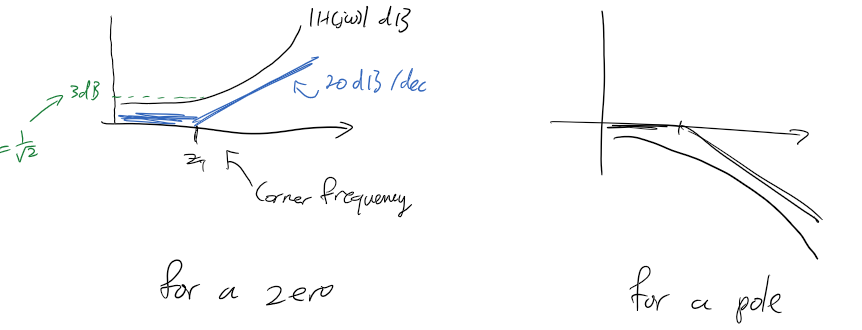 |H(jω)| dB
3dB
20 dB/dec
= 1/√2
z₁
Corner frequency
for a zero
for a pole